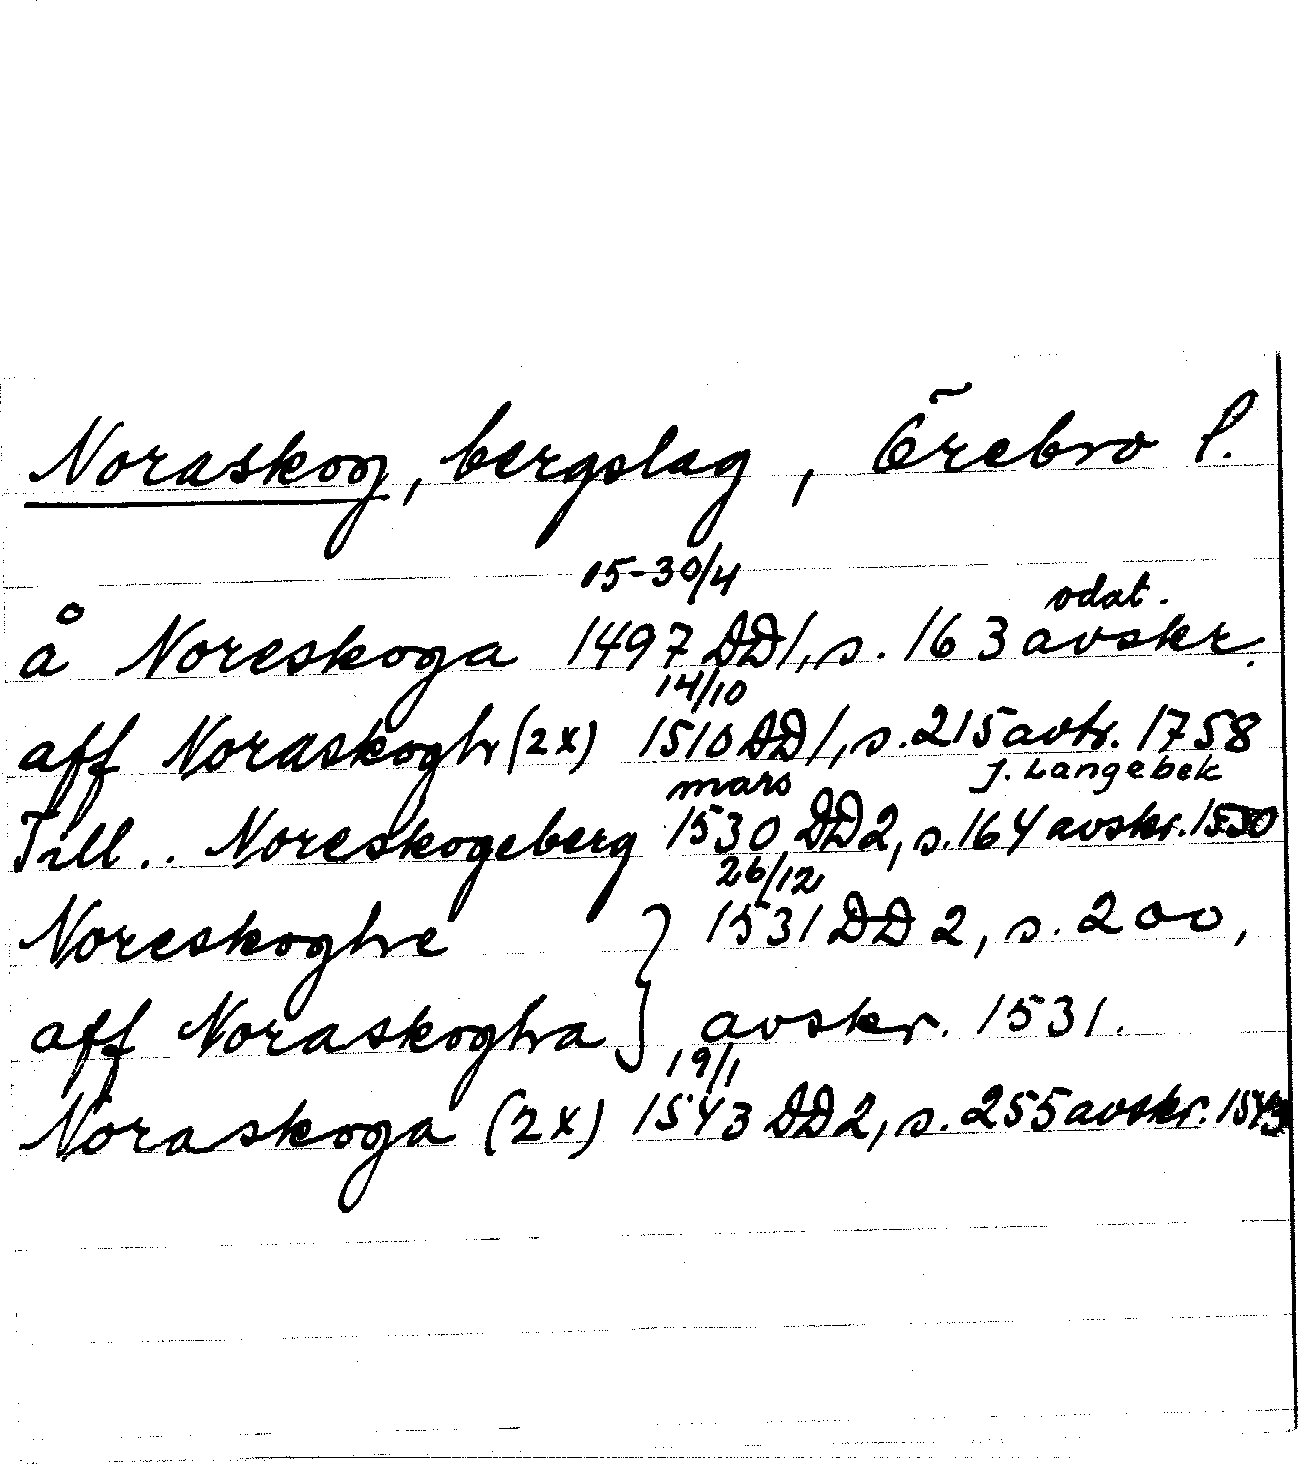 Noraskog, bergslag, Örebro l.
15-30/4
odat.
å Noreskoga 1497 DD1, s. 163 avskr.
14/10
aff Noraskogh (2x) 1510 DD1, s. 215 avtr. 1758
mars J. Langebek
Till.. Noreskogeberg 1530 DD2, s. 164 avskr. 1530
26/12
Noreskoghe } 1531 DD 2, s. 200,
aff Noraskogha } avskr. 1531.
19/1
Noraskoga (2x) 1543 DD2, s. 255 avskr. 1543